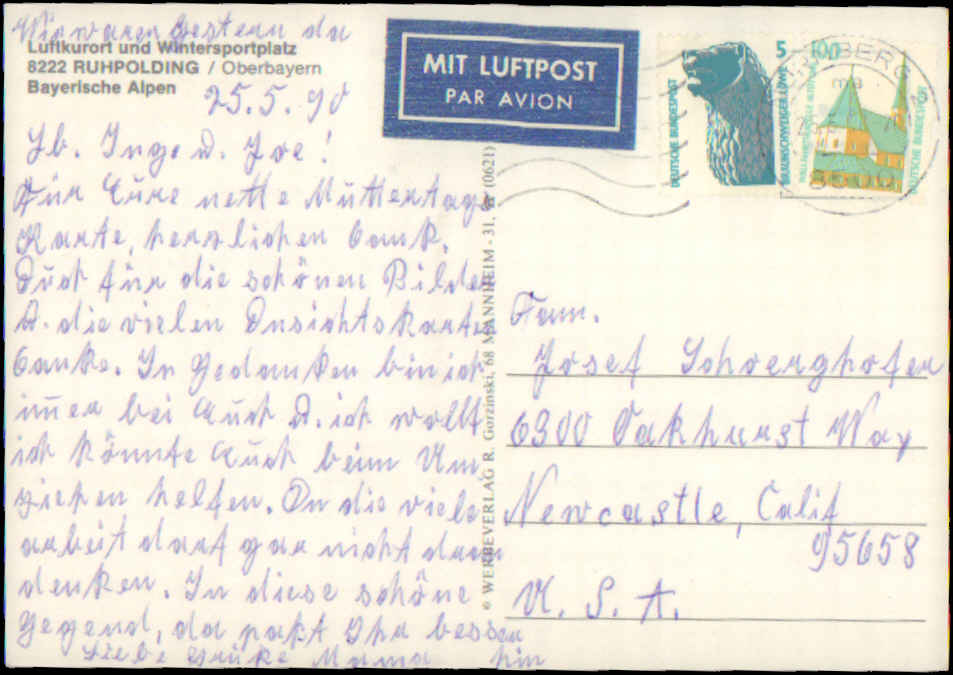 Wir waren gestern da
Luftkurort und Wintersportplatz
8222 RUHPOLDING / Oberbayern
Bayerische Alpen
25.5.90
Lb. Inge u. Joe!
Für Eure nette Muttertags
Karte, herzlichen Dank.
Auch für die schönen Bilder
u. die vielen Ansichtskarten
Danke. In Gedanken bin ich
immer bei Euch u. ich wollt
ich könnte Euch beim Um
ziehen helfen. An die viele
arbeit darf gar nicht dran
denken. In diese schöne
Gegend, da paßt Ihr besser
hin
Liebe Grüße Mama
© WERBEVERLAG R. Gorzinski, 68 MANNHEIM - 31, ☎ (0621)
MIT LUFTPOST
PAR AVION
DEUTSCHE BUNDESPOST
5
BRAUNSCHWEIGER LÖWE
100
WALLFAHRTSKAPELLE ALTÖTTING
DEUTSCHE BUNDESPOST
8500
Fam.
Josef Schoerghofer
6300 Oakhurst Way
Newcastle, Calif
95658
U. S. A.